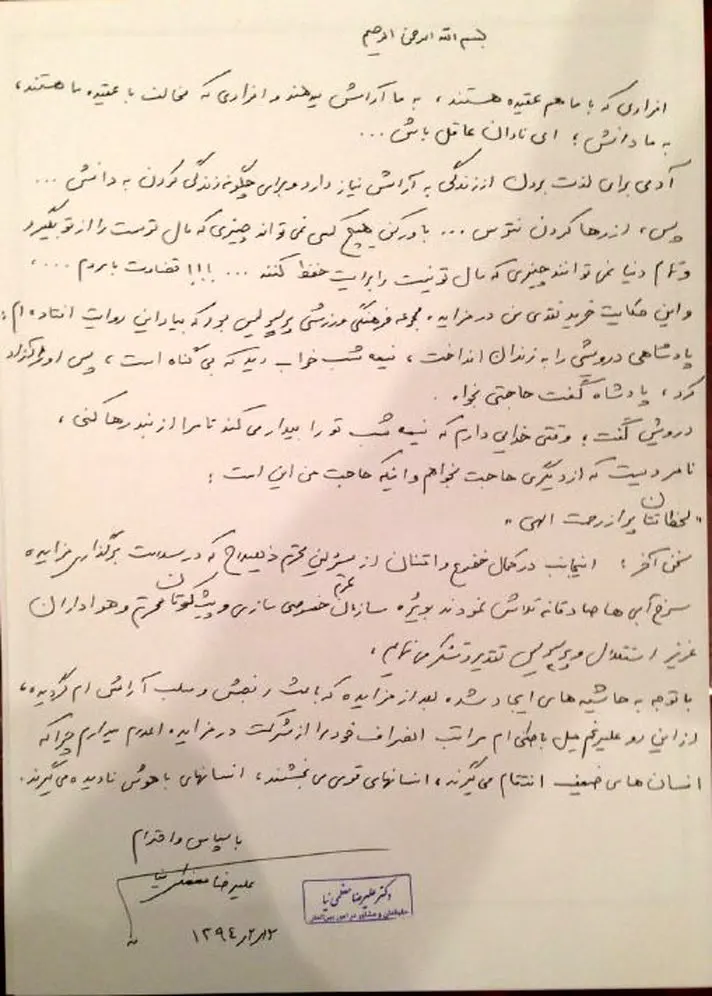 بسم الله الرحمن الرحیم
افرادی که با ما هم عقیده هستند، به ما آرامش میدهند و افرادی که مخالف با عقیده ما هستند،
به ما دانش؛ ای نادان عاقل باش ...
آدمی برای لذت بردن از زندگی به آرامش نیاز دارد و برای چگونه زندگی کردن به دانش ...
پس، از رها کردن نترس ... باور کن هیچ کسی نمی تواند چیزی که مال توست را از تو بگیرد
و تمام دنیا نمی توانند چیزی که مال تو نیست را برایت حفظ کنند ... !!! قضاوت با مردم ...،
و این حکایت خرید نقدی من در مزایده، مجموعه فرهنگی ورزشی پرسپولیس بود که بیاد این روایت افتاده ام:
پادشاهی درویشی را به زندان انداخت، نیمه شب خواب دید که بی گناه است، پس او را آزاد
کرد، پادشاه گفت حاجتی بخواه.
درویش گفت؛ وقتی خدایی دارم که نیمه شب تو را بیدار می کند تا مرا از بند رها کنی،
نامردیست که از دیگری حاجت بخواهم و اینکه حاجت من این است:
"لحظاتتان پر از رحمت الهی"
سخن آخر: اینجانب در کمال خضوع و امتنان از مسئولین محترم ذیصلاح که در سلامت برگذاری مزایده
سرخ آبی ها صادقانه تلاش نمودند بویژه سازمان محترم خصوصی سازی و پیشکسوتان محترم و هواداران
عزیز استقلال و پرسپولیس تقدیر و تشکر می نمایم،
با توجه به حاشیه های ایجاد شده بعد از مزایده که باعث رنجش و سلب آرامش ام گردیده،
از این رو علیرغم میل باطنی ام مراتب انصراف خود را از شرکت در مزایده اعلام میدارم چرا که
انسان های ضعیف انتقام می گیرند، انسانهای قوی می بخشند، انسانهای باهوش نادیده می گیرند.
با سپاس و احترام
علیرضا
دکتر علیرضا
حقوقدان و مشاور در امور بین الملل
۱۳۹۴